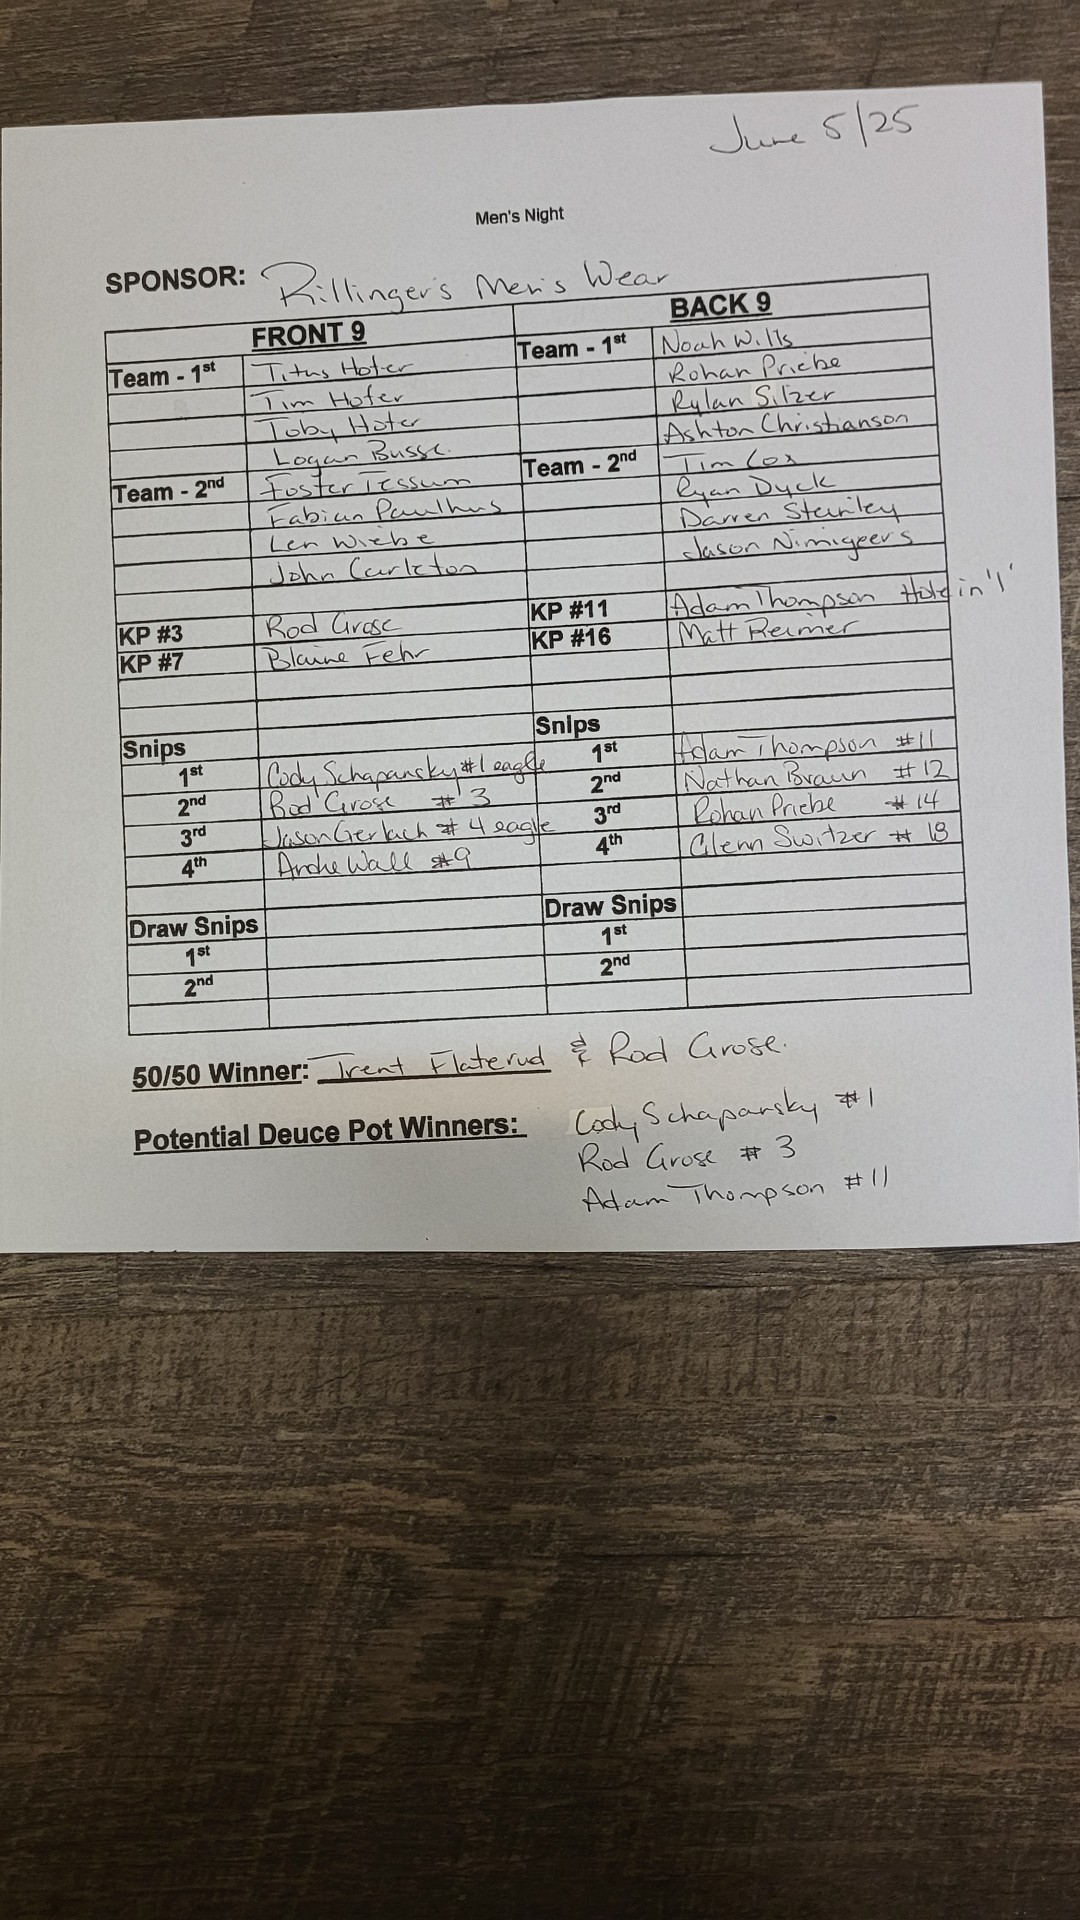 June 5/25
Men's Night
SPONSOR: Rillinger's Men's Wear
FRONT 9 BACK 9
Team - 1st Titus Hofer Team - 1st Noah Wills
Tim Hofer Rohan Priebe
Toby Hofer Rylan Silzer
Logan Busse. Ashton Christianson
Team - 2nd Foster Tessum Team - 2nd Tim Cox
Fabian Paulhus Ryan Dyck
Len Wiebe Darren Stanley
John Carleton Jason Nimigeers
KP #3 Rod Grose KP #11 Adam Thompson Hole in '1'
KP #7 Blaine Fehr KP #16 Matt Reimer
Snips Snips
1st Cody Schapansky #1 eagle 1st Adam Thompson #11
2nd Rod Grose #3 2nd Nathan Braun #12
3rd Jason Gerlach #4 eagle 3rd Rohan Priebe #14
4th Andre Wall #9 4th Glenn Switzer #18
Draw Snips Draw Snips
1st 1st
2nd 2nd
50/50 Winner: Trent Flaterud & Rod Grose.
Potential Deuce Pot Winners: Cody Schapansky #1
Rod Grose #3
Adam Thompson #11